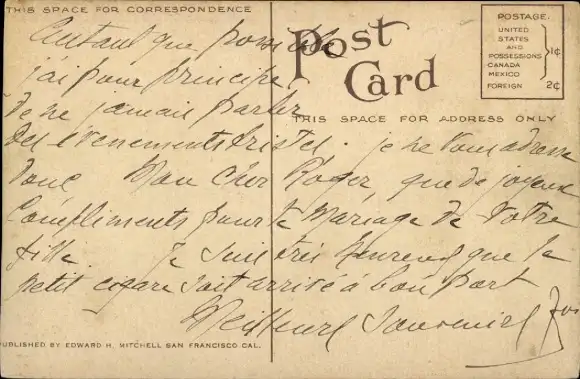 THIS SPACE FOR CORRESPONDENCE
Post
Card
POSTAGE.
UNITED
STATES
AND
POSSESSIONS
CANADA
MEXICO
1¢
FOREIGN 2¢
THIS SPACE FOR ADDRESS ONLY
Autant que possible
j'ai pour principe
de ne jamais parler
des evenements tristes. je ne vous adresse
donc Mon Cher Roger, que de joyeux
Compliments pour le Mariage de Votre
fille Je suis très heureux que le
petit cigare soit arrivé à bon port
Meilleurs Souvenirs
PUBLISHED BY EDWARD H. MITCHELL SAN FRANCISCO CAL.